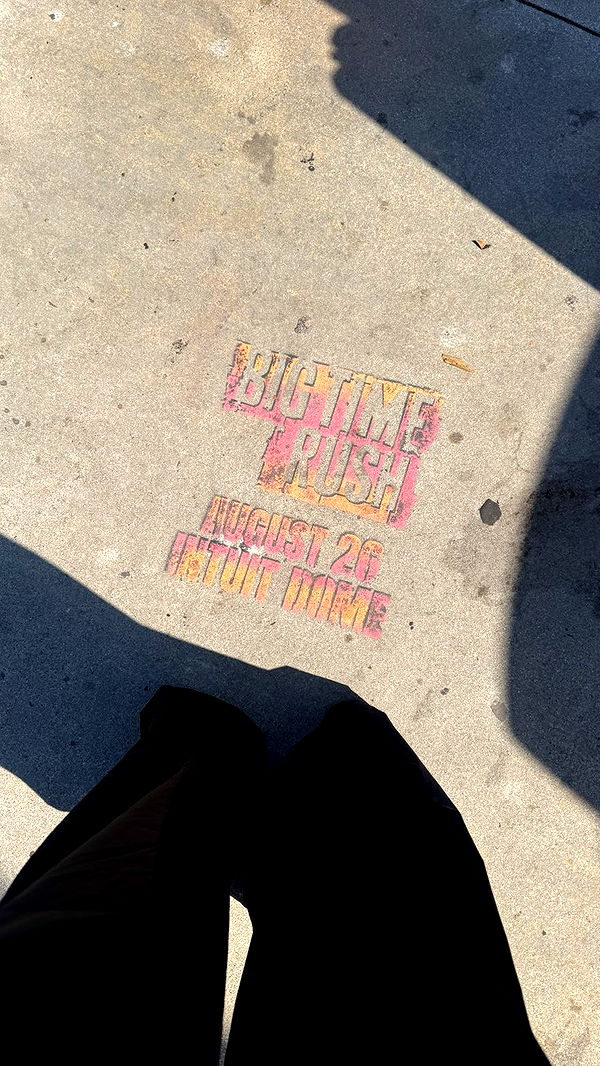 BIG TIME
RUSH
AUGUST 26
INTUIT DOME